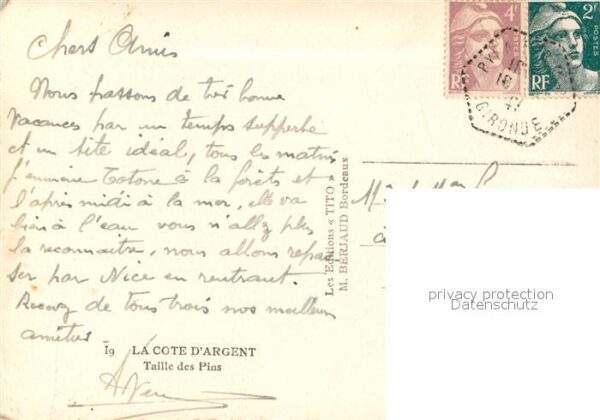 Chers Amis
Nous passons de très bonne
vacances par un temps supperbe
et un site idéal, tous les matin
j'emmène à la forêts et
l'après midi à la mer, elle va
bien à l'eau vous n'allez plus
la reconnaitre, nous allons repas
ser par Nice en rentrant.
Recevez de tous trois nos meilleurs
amitiés
19 LA COTE D'ARGENT
Taille des Pins
Les Editions « TITO »
M. BERJAUD Bordeaux
4F
POSTES
2F
RF
RF
18
47
GIRONDE
privacy protection
Datenschutz